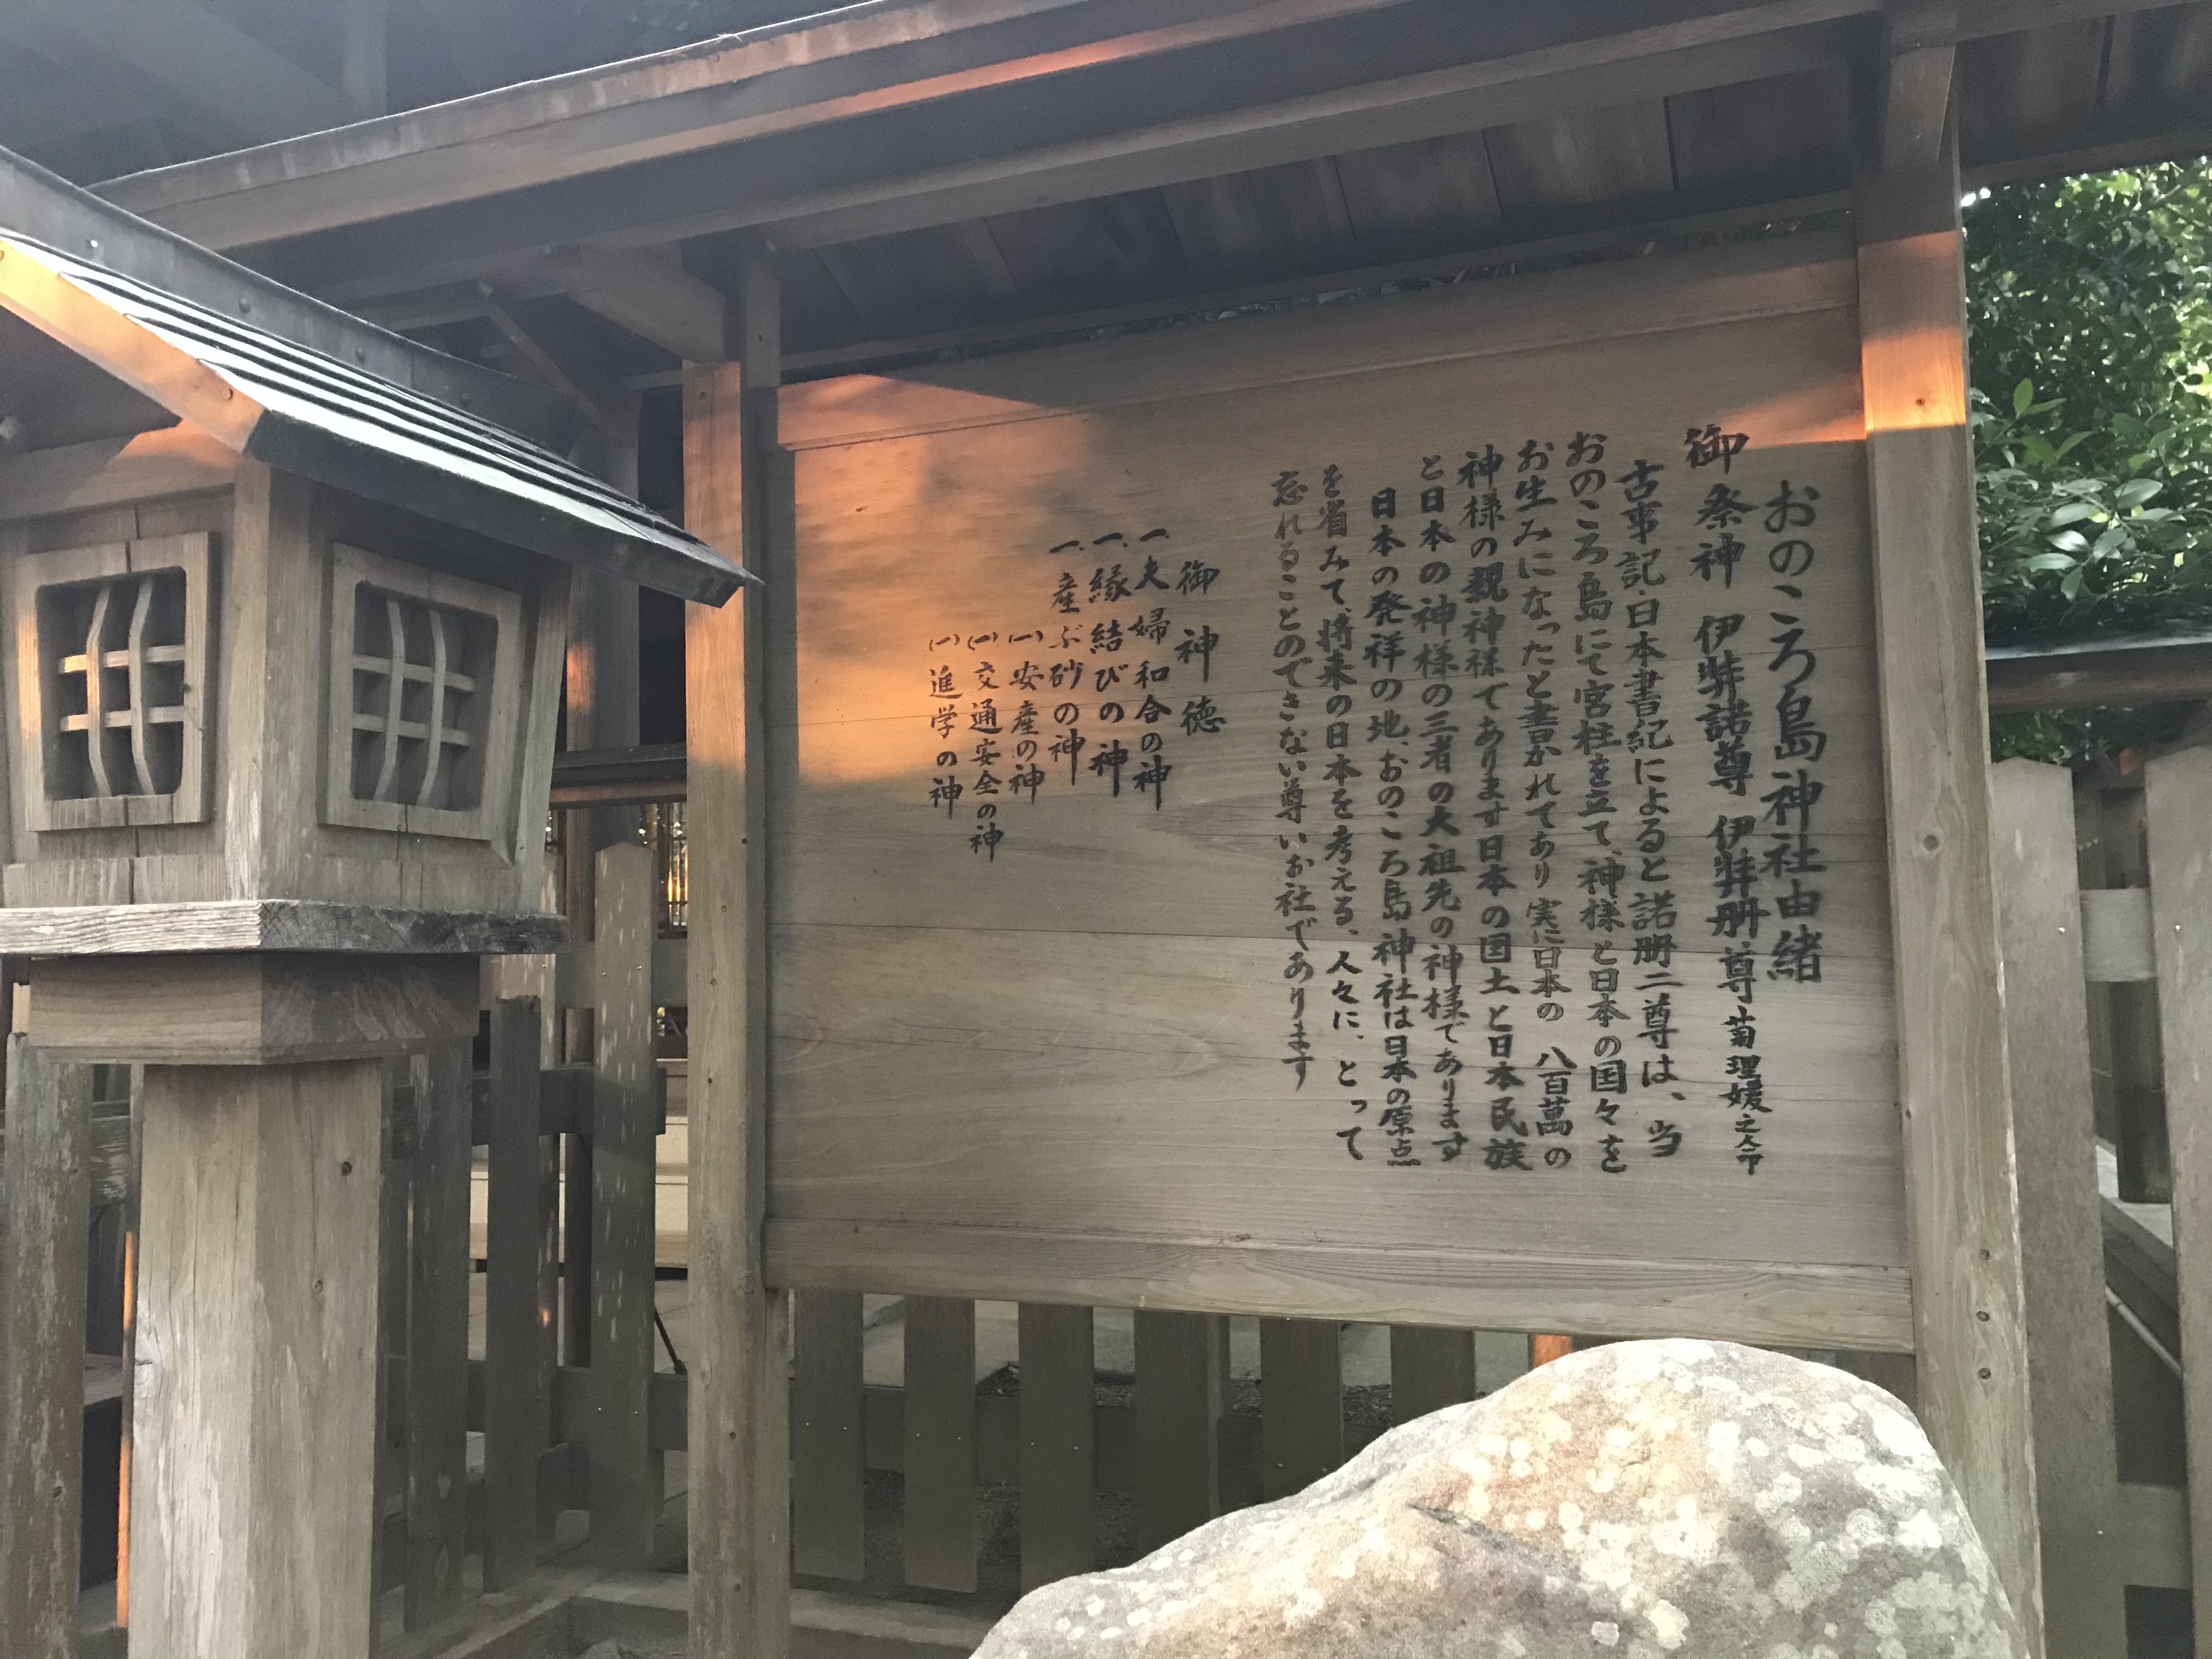 おのころ島神社由緒
御祭神 伊弉諾尊 伊弉冊尊 菊理媛之命
古事記・日本書紀によると諾冊二尊は、当
おのころ島にて宮柱を立て、神様と日本の国々を
お生みになったと書かれてあり実に日本の 八百萬の
神様の親神様であります日本の国土と日本民族
と日本の神様の三者の大祖先の神様であります
日本の発祥の地、おのころ島神社は日本の原点
を省みて、将来の日本を考える、人々に、とって
忘れることのできない尊いお社であります
御神徳
一、夫婦和合の神
一、縁結びの神
一、産ぶ砂の神
(一)安産の神
(一)交通安全の神
(一)進学の神